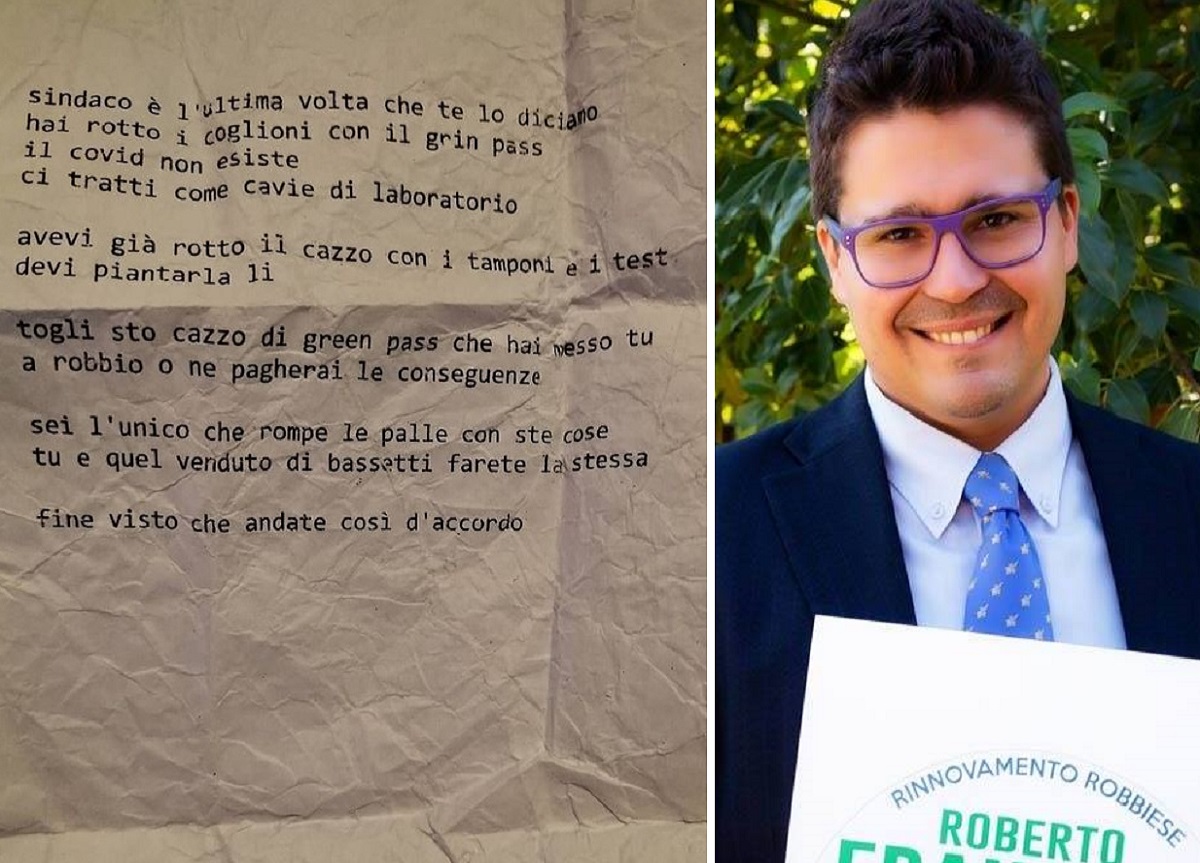 sindaco è l'ultima volta che te lo diciamo
hai rotto i coglioni con il grin pass
il covid non esiste
ci tratti come cavie di laboratorio
avevi già rotto il cazzo con i tamponi e i test
devi piantarla li
togli sto cazzo di green pass che hai messo tu
a robbio o ne pagherai le conseguenze
sei l'unico che rompe le palle con ste cose
tu e quel venduto di bassetti farete la stessa
fine visto che andate così d'accordo
RINNOVAMENTO ROBBIESE
ROBERTO